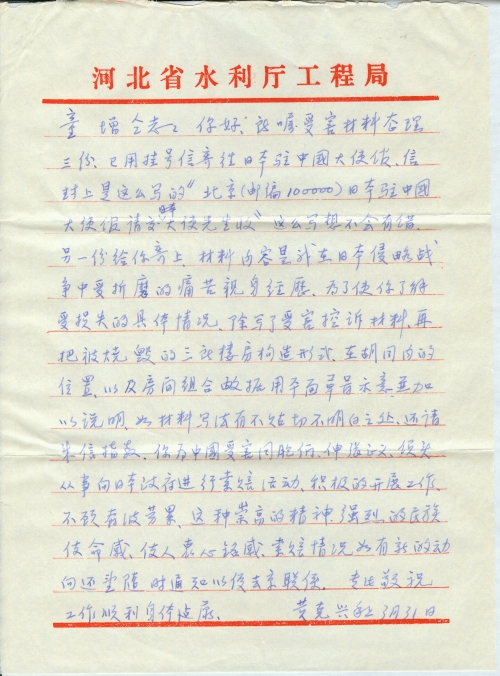 河北省水利厅工程局
童增同志: 你好, 遵嘱受害材料各理
三份, 已用挂号信寄给日本驻中國大使馆, 信
封上是这么写的“北京(邮编100000)日本驻中國
大使馆请交日本大使先生收”这么写想不会有错.
另一份给你寄上, 材料内容是我在日本侵略战
争中受折磨的痛苦親身经歷、为了使你了解
受损失的具体情况、除写了受害控诉材料, 再
把被烧毁的三所楼房构造形式, 在胡同内的
位置, 以及房间组合敌据用平面草图示意, 並加
以说明, 如材料写法有不妥切不明白之处, 还请
来信指教. 你为中國受害同胞们, 伸张正义, 领头
从事向日本政府进行索赔活动, 积极的开展工作,
不顾奔波劳累、这种崇高的精神, 强烈的民族
使命感, 使人衷心铭感, 索赔情况如有新的动
向还望随时通知以便去京联係. 专此敬祝
工作顺利身体健康. 黄克兴 3月31日